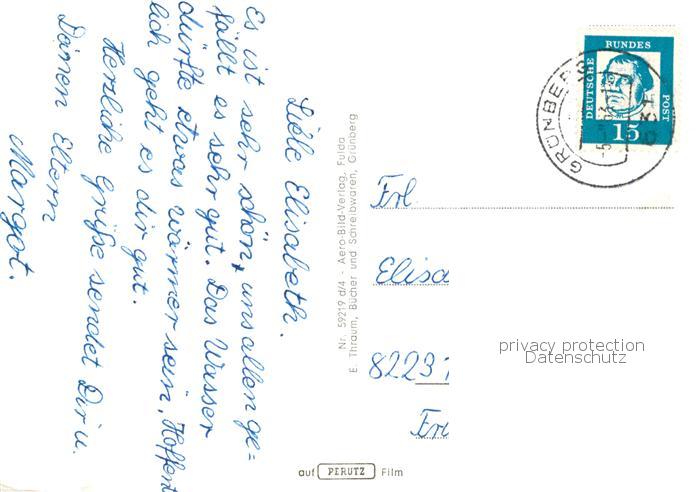 Liebe Elisabeth.
Es ist sehr schön, uns allen ge=
fällt es sehr gut. Das Wasser
dürfte etwas wärmer sein, Hoffent
lich geht es dir gut.
Herzliche Grüße sendet Dir u.
Deinen Eltern
Margot.
Nr. 59219 d/4 - Aero-Bild-Verlag, Fulda
E. Thraum, Bücher und Schreibwaren, Grünberg
auf PERUTZ Film
DEUTSCHE
BUNDES
POST
15
GRÜNBERG
Frl.
Elisa
8223
privacy protection
Datenschutz